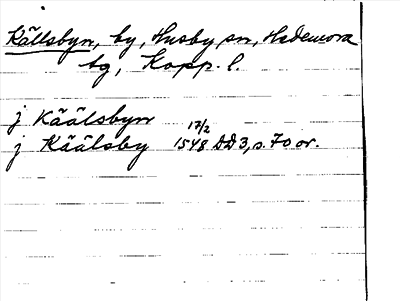 Källsbyn, by, Husby sn, Hedemora
tg, Kopp. l.
j Käälsbyn
j Käälsby 17/2 1548 DD 3, s. 70 or.